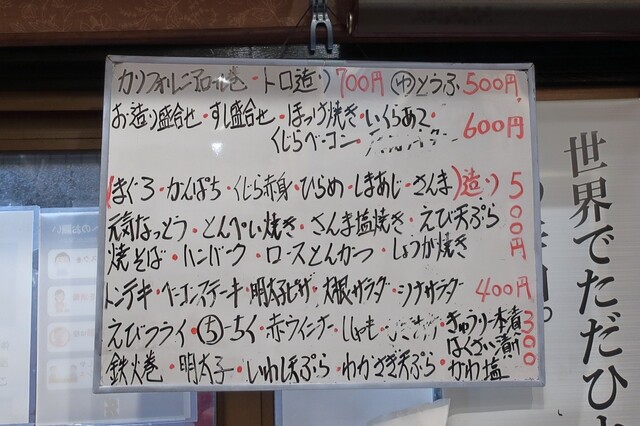 カリフォルニアロール巻・トロ造り 700円 ゆとうふ 500円
お造り盛合せ・すし盛合せ・ほっけ焼き・いくらあて・
くじらベーコン・ 600円
(まぐろ・かんぱち・くじら赤身・ひらめ・しまあじ・さんま)造り 500円
元気なっとう・とんぺい焼き・さんま塩焼き・えび天ぷら
焼そば・ハンバーグ・ロースとんかつ・しょうが焼き
トンテキ・ベーコンステーキ・明太ピザ・大根サラダ・シーナサラダー 400円
えびフライ・ち・ちく・赤ウィンナー・ししゃも・ ・きゅうり一本漬 300
はくさい漬
鉄火巻・明太子・いわし天ぷら・わかさぎ天ぷら・かわ塩
世界でただひ